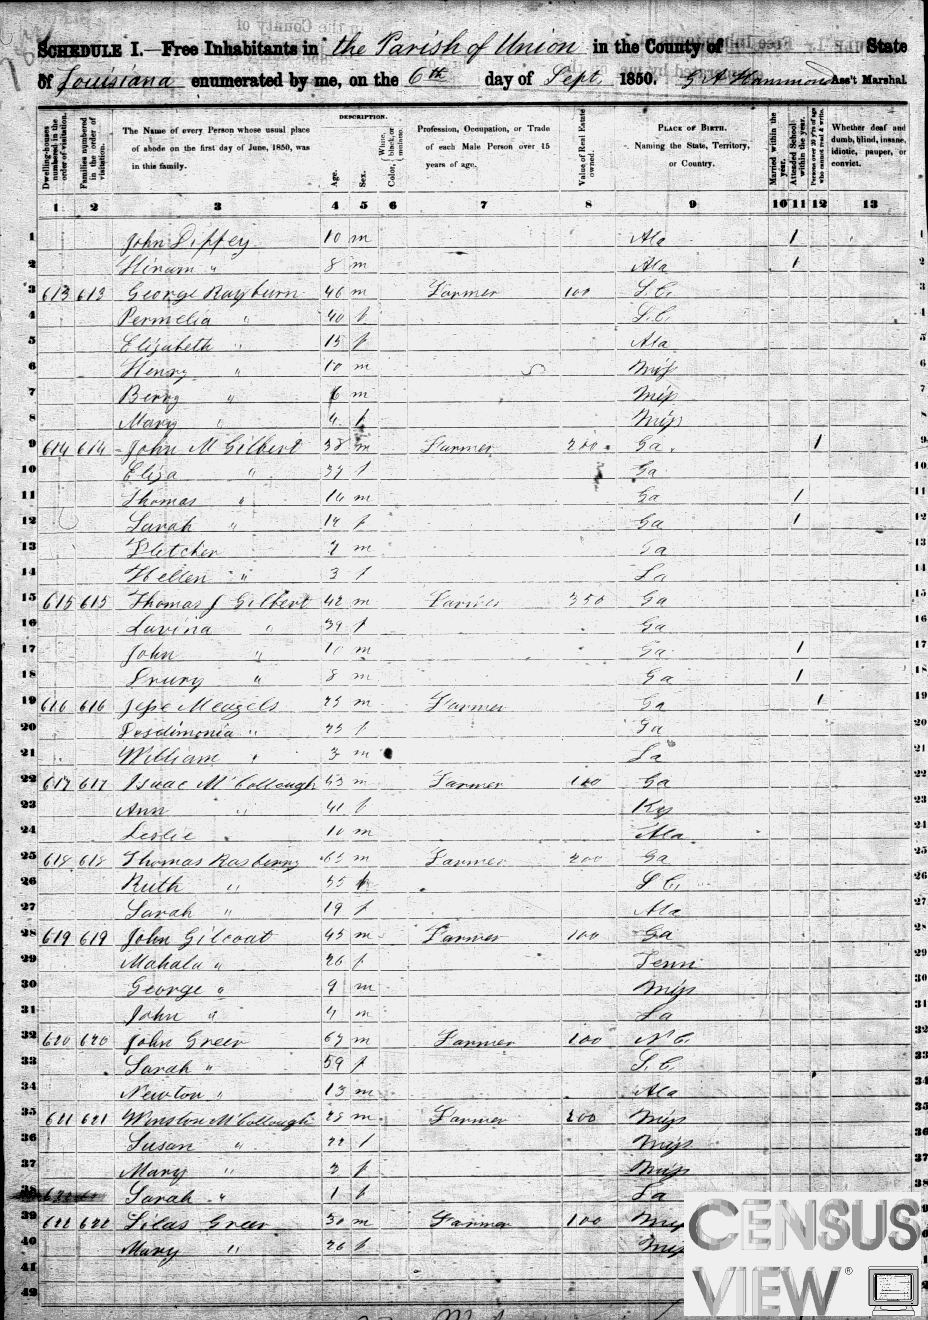 SCHEDULE I.—Free Inhabitants in the Parish of Union in the County of State
of Louisiana enumerated by me, on the 6th day of Sept 1850. Ass't Marshal.
Dwelling-houses numbered in the order of visitation.
Families numbered in the order of visitation.
The Name of every Person whose usual place of abode on the first day of June, 1850, was in this family.
DESCRIPTION.
Age.
Sex.
Color, White, black, or mulatto.
Profession, Occupation, or Trade of each Male Person over 15 years of age.
Value of Real Estate owned.
PLACE OF BIRTH. Naming the State, Territory, or Country.
Married within the year.
Attended School within the year.
Persons over 20 y'rs of age who cannot read & write.
Whether deaf and dumb, blind, insane, idiotic, pauper, or convict.
1 2 3 4 5 6 7 8 9 10 11 12 13
1 John 10 m Ala 1 1
2 Hiram " 8 m Ala 1 2
3 613 613 George Rayburn 46 m Farmer 100 S.C. 3
4 Permelia " 40 f S.C. 4
5 Elizabeth " 15 f Ala 5
6 Henry " 10 m Miss 6
7 Berry " 6 m Miss 7
8 Mary " 4 f Miss 8
9 614 614 John M Gilbert 38 m Farmer 200 Ga 1 9
10 Eliza " f Ga 10
11 Thomas " m Ga 1 11
12 Sarah " f Ga 1 12
13 Fletcher m Ga 13
14 Hellen " 3 f La 14
15 615 615 Thomas J Gilbert 42 m Farmer 350 Ga 15
16 Lavina " 39 f Ga 16
17 John " m Ga 1 17
18 Drury " 8 m Ga 1 18
19 616 616 Jesse Meazels 25 m Farmer Ga 1 19
20 Desdimonia " 25 f Ga 20
21 William " 3 m La 21
22 617 617 Isaac McCollough 43 m Farmer 100 Ga 22
23 Ann " 41 f Ky 23
24 Leslie 10 m Ala 24
25 618 618 Thomas Rasberry 63 m Farmer 200 Ga 25
26 Ruth " 55 f S C. 26
27 Sarah " 19 f Ala 27
28 619 619 John Gilcoat 45 m Farmer 100 Ga 28
29 Mahala " 26 f Tenn 29
30 George " 9 m Miss 30
31 John " 4 m La 31
32 620 620 John Greer 67 m Farmer 100 N C. 32
33 Sarah " 59 f S. C. 33
34 Newton " 13 m Ala 34
35 621 621 Winston McCollough 25 m Farmer 200 Miss 35
36 Susan " 22 f Miss 36
37 Mary " 3 f Miss 37
38 Sarah " 1 f La 38
39 622 622 Silas Greer 30 m Farmer 100 Miss 39
40 Mary " 26 f Miss
41
42
CENSUS
VIEW ®